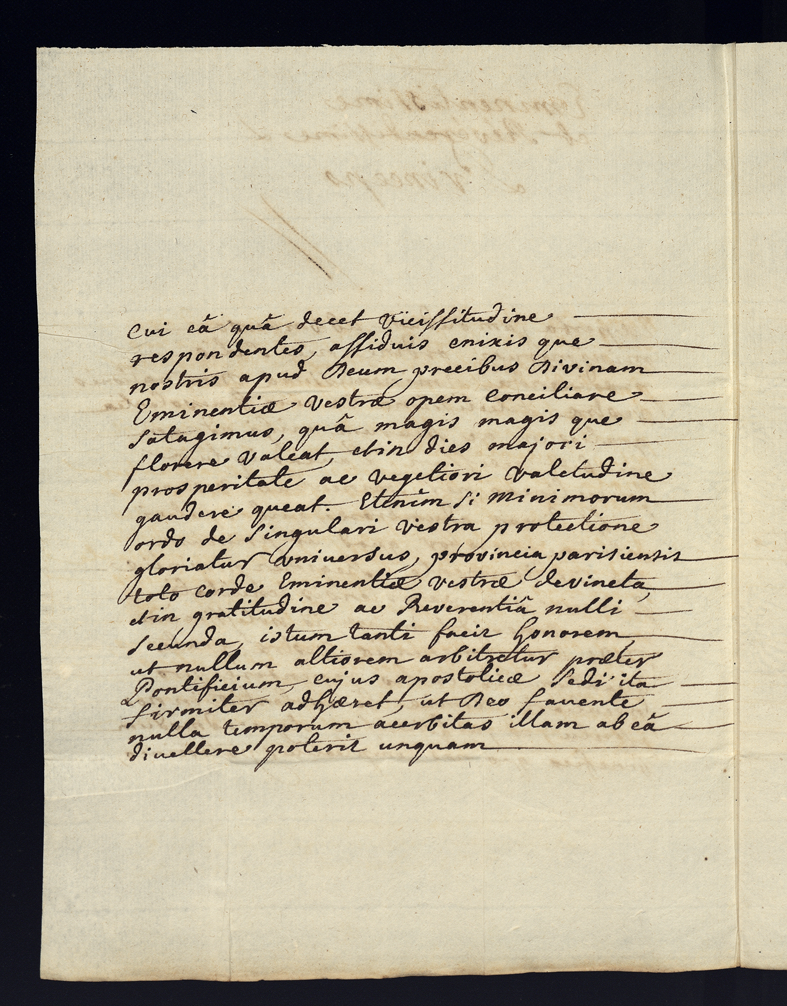 Cui eâ quâ decet vicissitudine
respondentes, assiduis enixis que
nostris apud Deum precibus Divinam
Eminentiæ Vestræ opem Conciliare
Satagimus, quâ magis magis que
florere valeat, et in dies majori
prosperitate ac vegetiori valetudine
gaudere queat. Etenim si Minimorum
ordo de singulari Vestra protectione
gloriatur universus, provincia parisiensis
toto corde Eminentiæ vestræ devincta,
et in gratitudine ac Reverentiâ nulli
secunda, istum tanti facit honorem,
ut nullum altiorem arbitretur præter
Pontificium, cujus apostolicæ Sedi ita
firmiter adhæret, ut Deo favente
nulla temporum acerbitas illam ab eâ
divellere poterit unquam